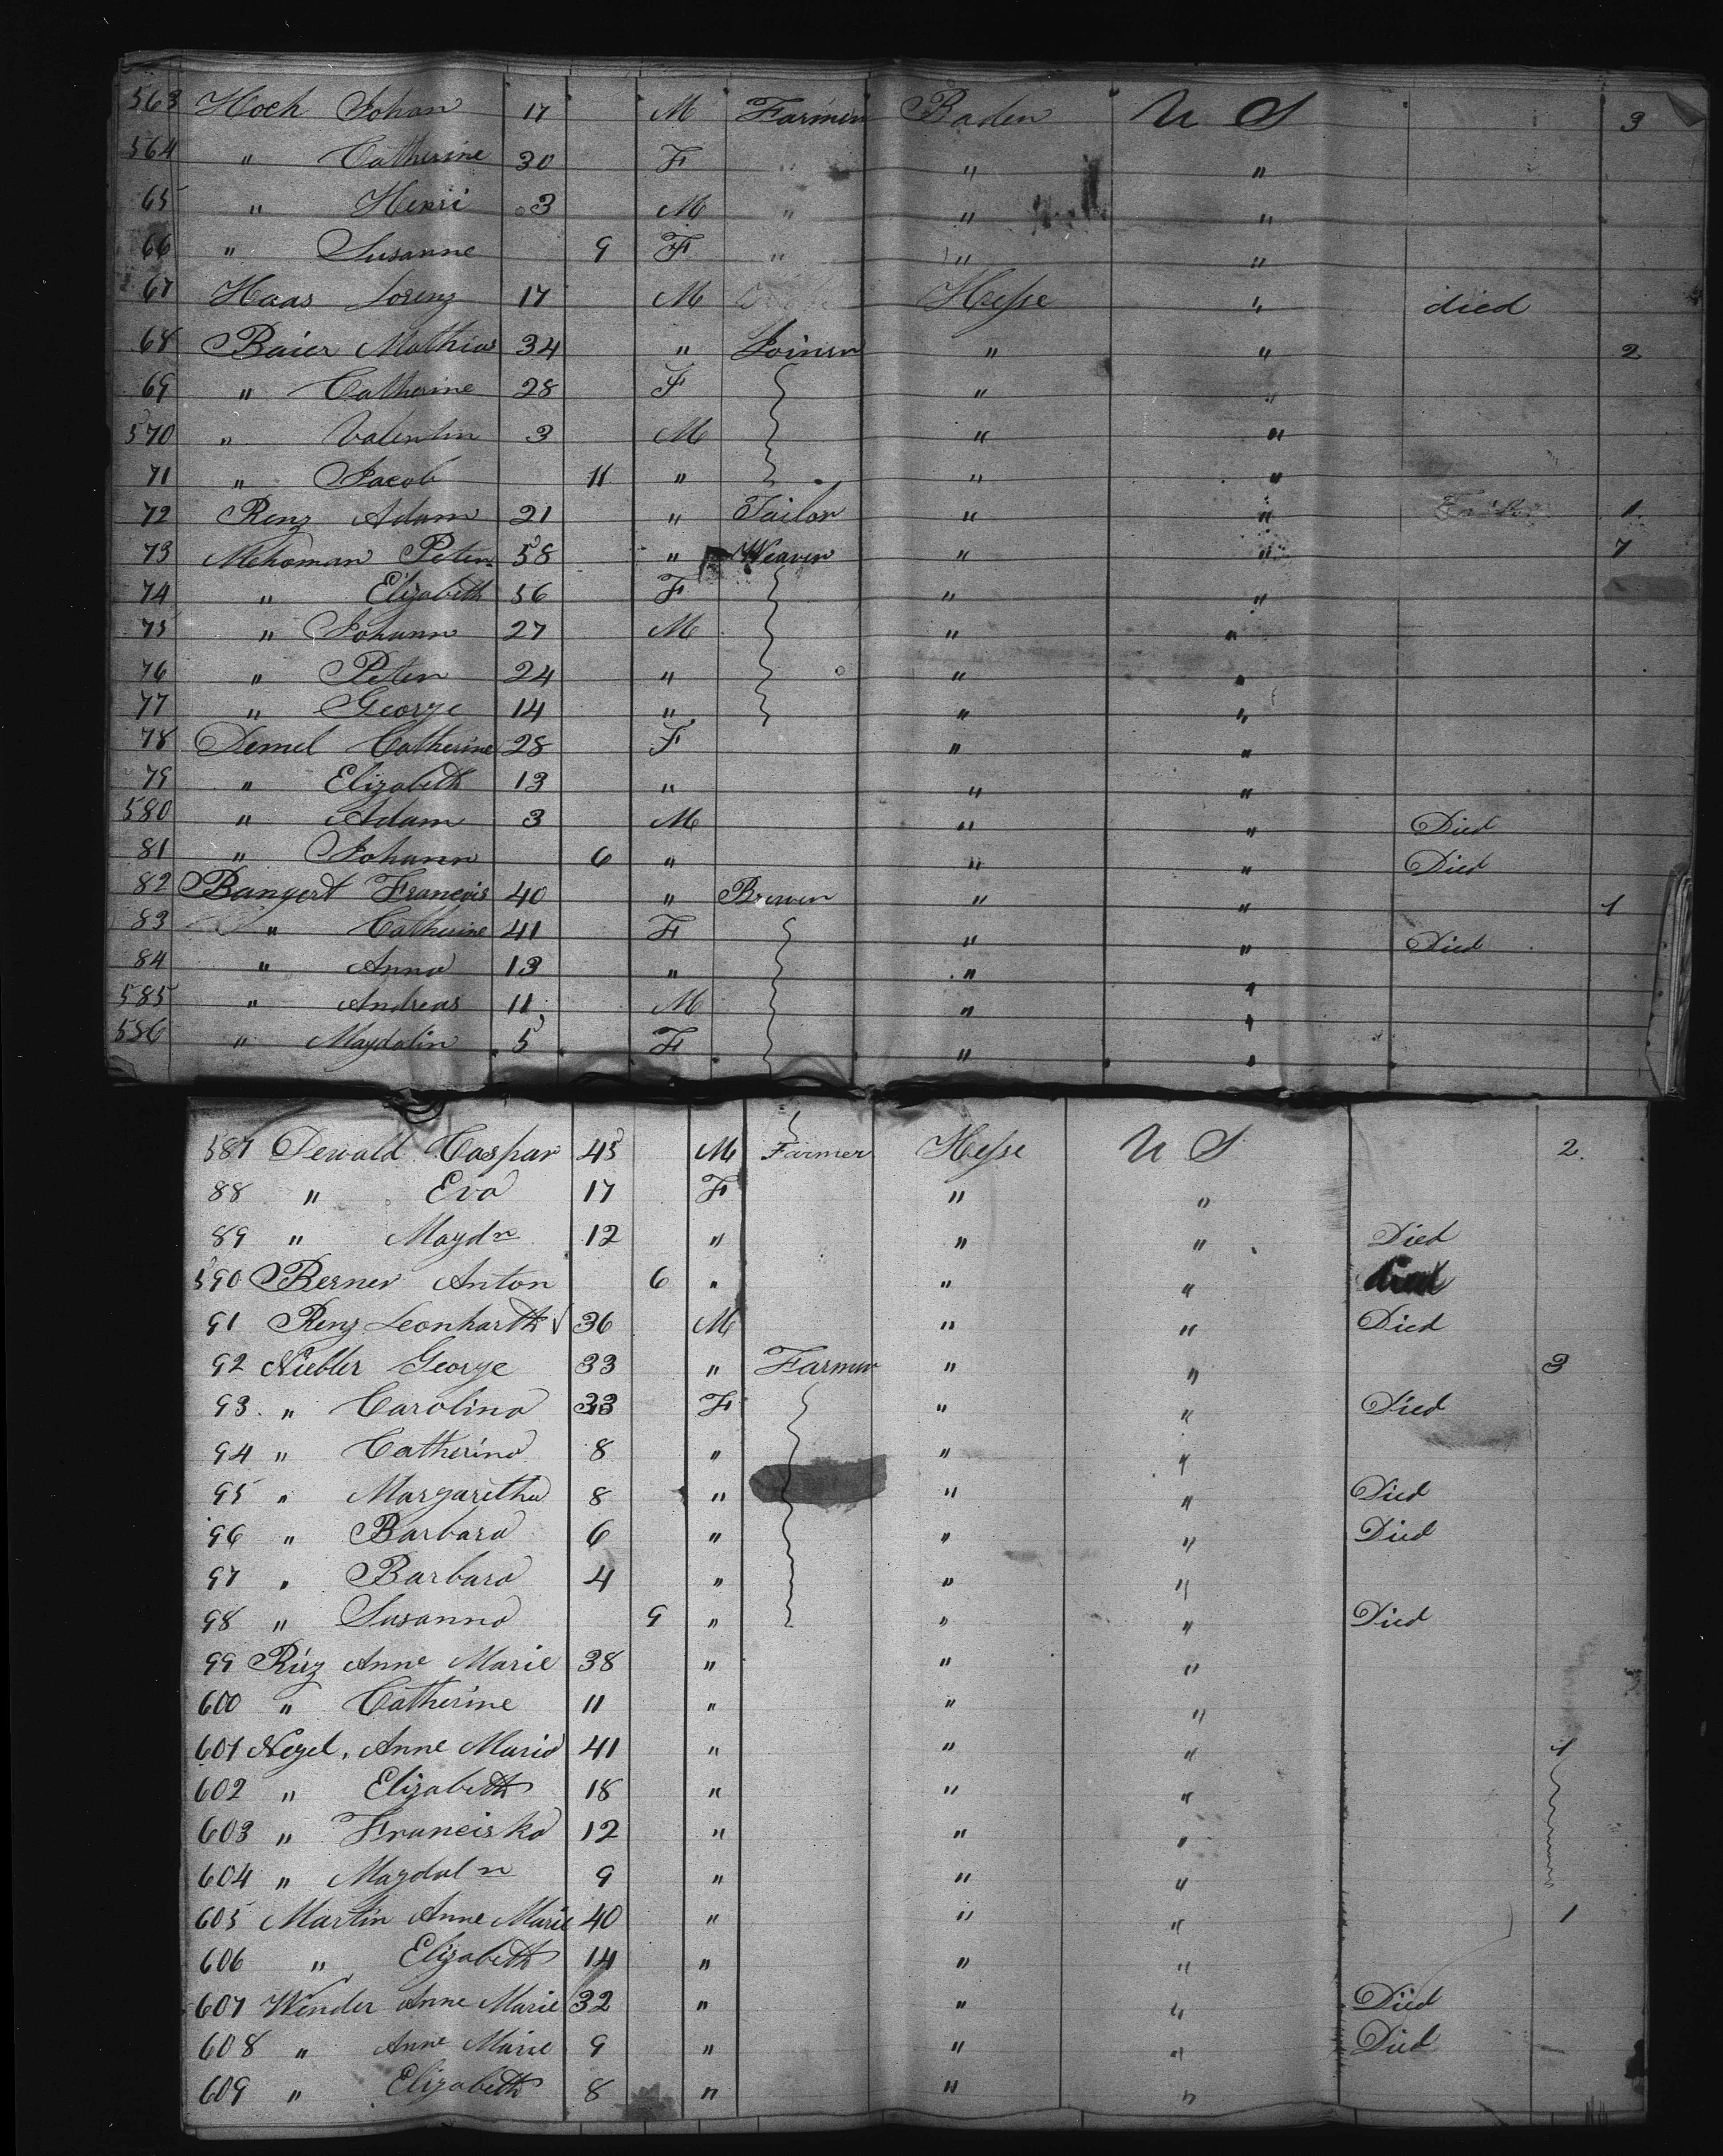 563 Hoch Johan 17 M Farmer Baden U S 3
564 " Catherine 30 F " " "
65 " Henri 3 M " " "
66 " Susanne 9 F " " "
67 Haas Lorenz 17 M Hesse " died
68 Baier Mathias 34 " Joiner " " 2
69 " Catherine 28 F " "
570 " Valentin 3 M " "
71 " Jacob 11 " " "
72 Renz Adam 21 " Tailor " " 1
73 Mehoman Peter 58 " Weaver " " 7
74 " Elizabeth 56 F " "
75 " Johann 27 M " "
76 " Peter 24 " " "
77 " George 14 " " "
78 Demel Catherine 28 F " "
79 " Elizabeth 13 " " "
580 " Adam 3 M " " Died
81 " Johann 6 " " " Died
82 Bangert Francois 40 " Brewer " " 1
83 " Catherine 41 F " " Died
84 " Anna 13 " " "
585 " Andreas 11 M " "
586 " Magdalin 5 F " "
587 Dewald Caspar 45 M Farmer Hesse U S 2.
88 " Eva 17 F " "
89 " Magdn 12 " " " Died
590 Berner Anton 6 " " " died
91 Renz Leonharth √ 36 M " " Died
92 Niebler George 33 " Farmer " " 3
93 " Carolina 33 F " " Died
94 " Catherina 8 " " "
95 " Margaretha 8 " " " Died
96 " Barbara 6 " " " Died
97 " Barbara 4 " " "
98 " Susanna 9 " " " Died
99 Riez Anne Marie 38 " " "
600 " Catherine 11 " " "
601 Negel, Anne Maria 41 " " " 1
602 " Elizabeth 18 " " "
603 " Franciska 12 " " "
604 " Magdaln 9 " " "
605 Martin Anne Marie 40 " " " 1
606 " Elizabeth 14 " " "
607 Wender Anne Marie 32 " " " Died
608 " Anne Marie 9 " " " Died
609 " Elizabeth 8 " " "